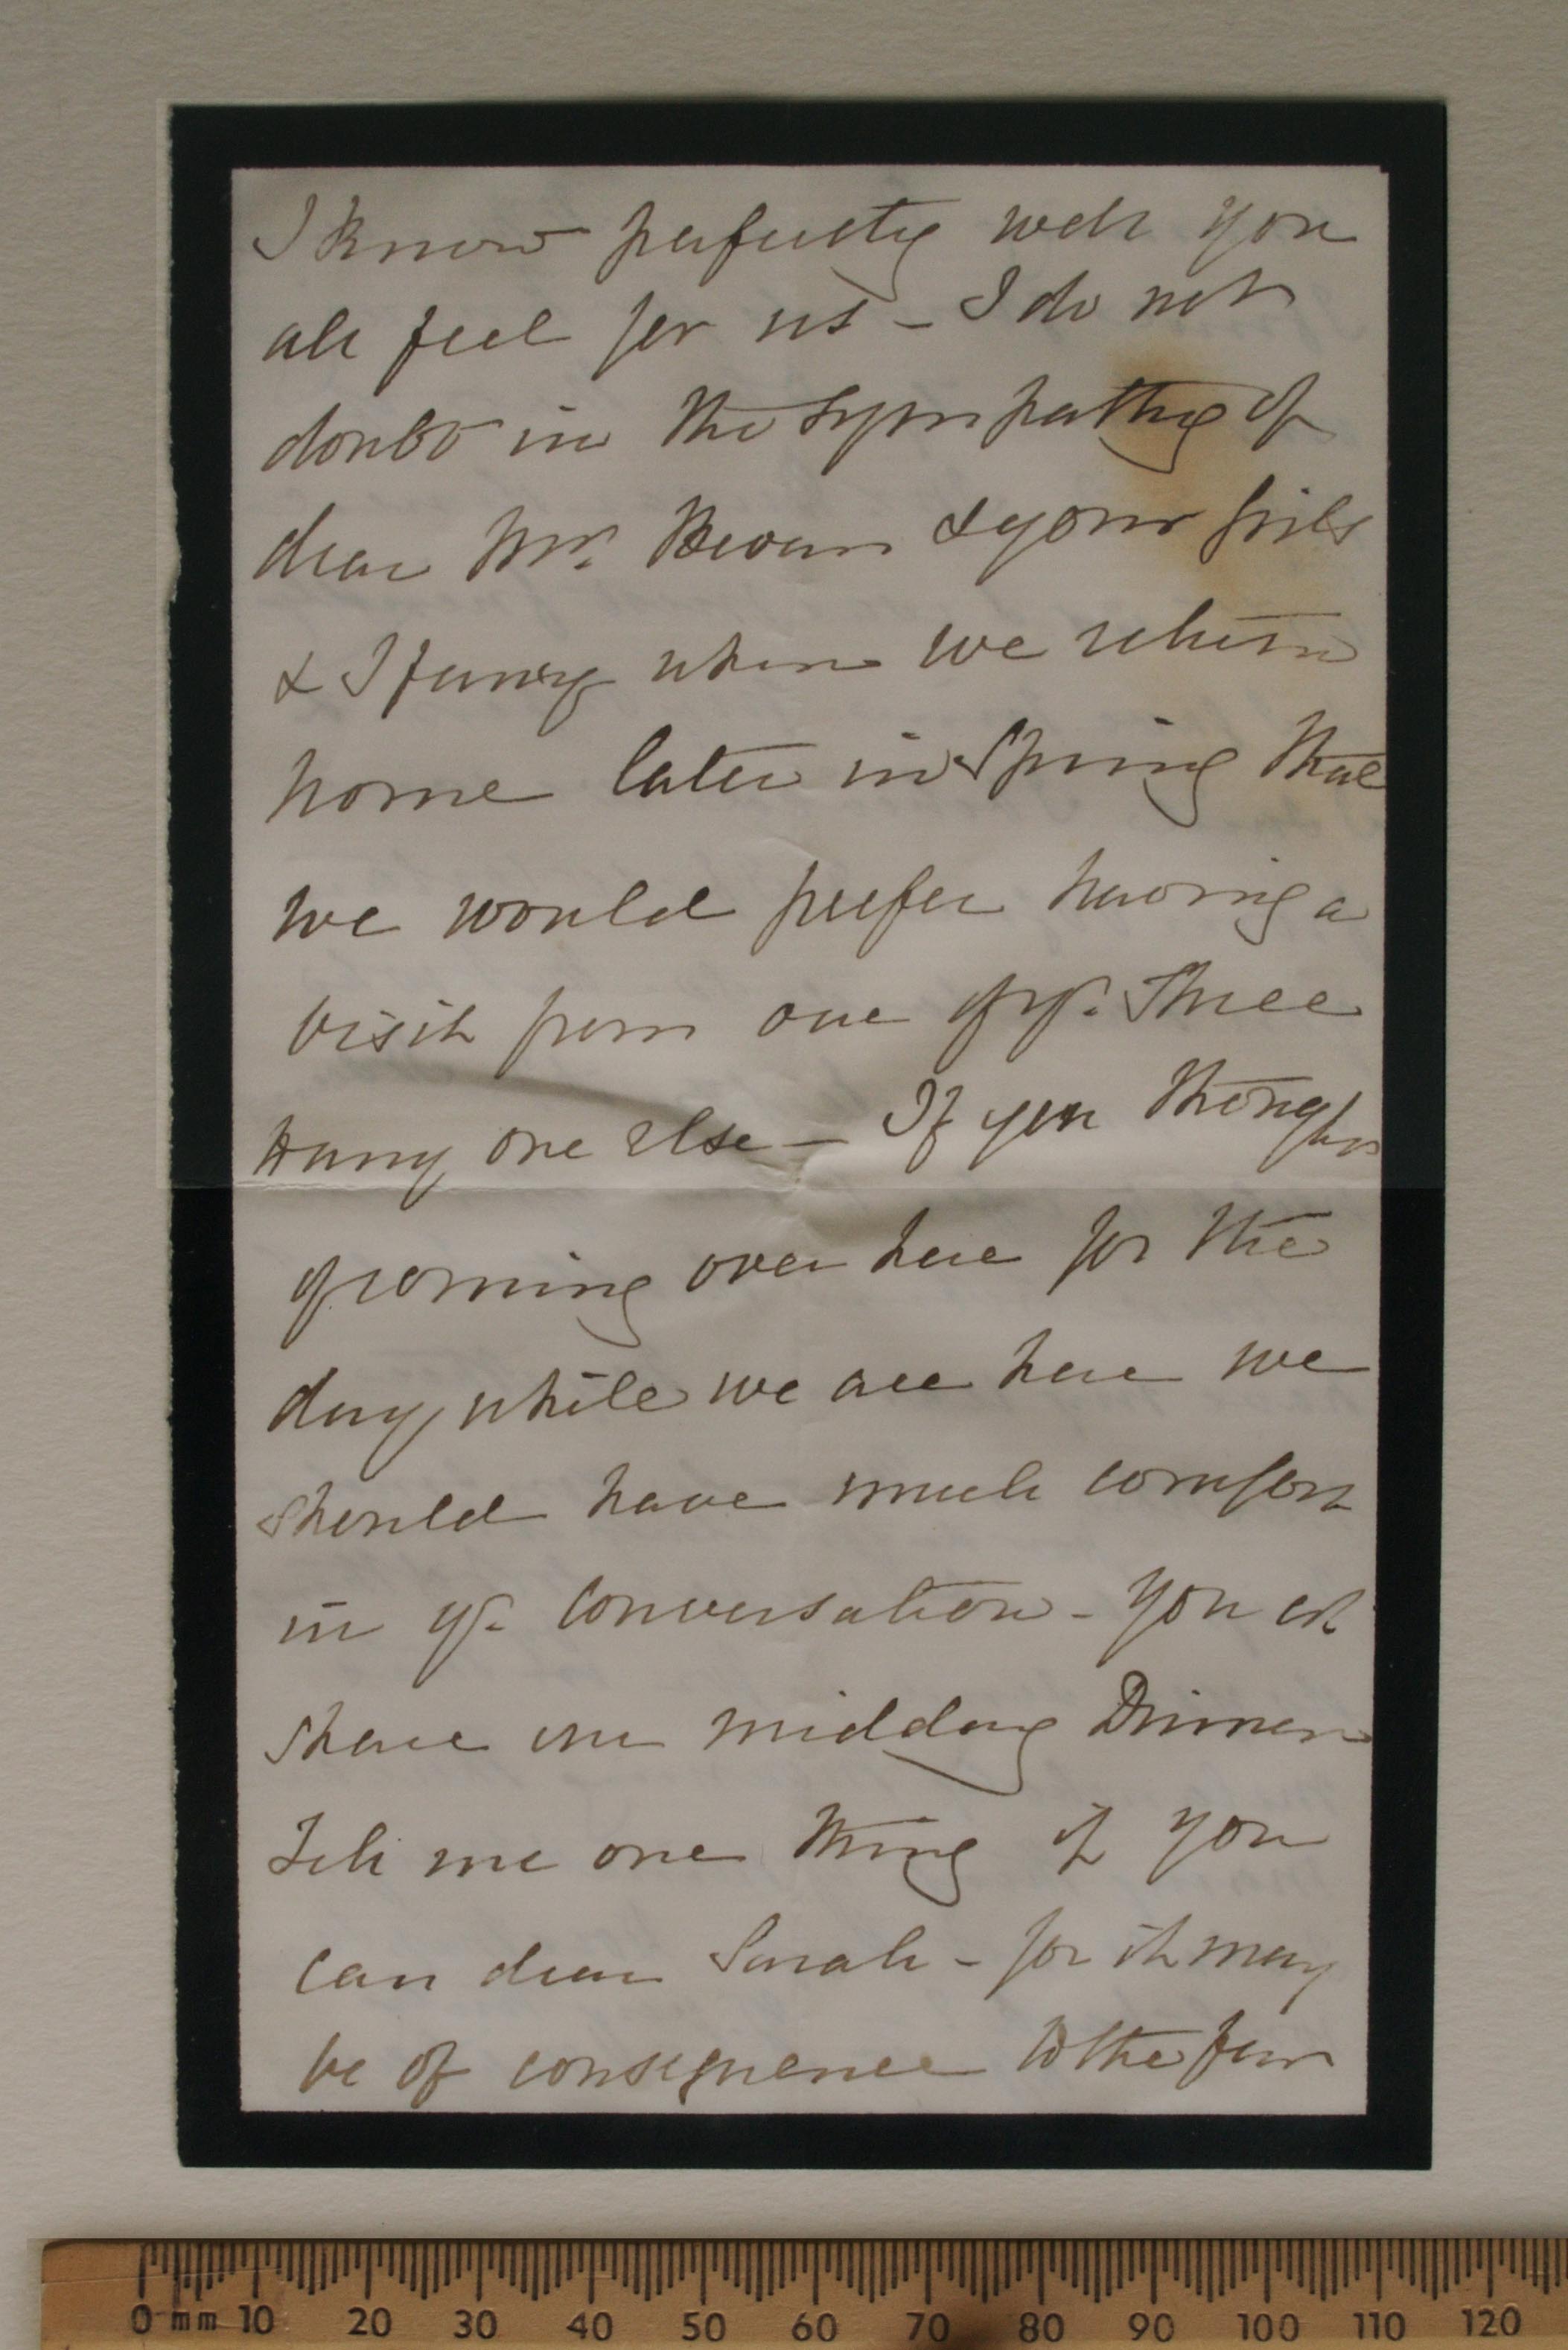 I know perfectly well you
all feel for us - I do not
doubt in the sympathy of
dear Mr. Bevan & your girls
& I fancy when we return
home later in Spring that
we would prefer having a
visit from one of yr. Three
to any one else - If you thought
of coming over here for the
day, while we are here we
should have much comfort
in yr. conversation - you cd.
share our midday Dinner
Tell me one thing if you
can dear Sarah - for it may
be of consequence to the few
0 mm 10 20 30 40 50 60 70 80 90 100 110 120